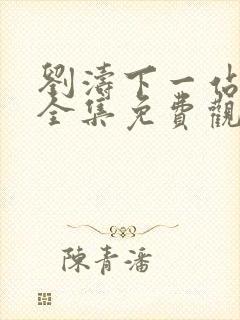 劉濤下一站
全集免費觀
陳青潘